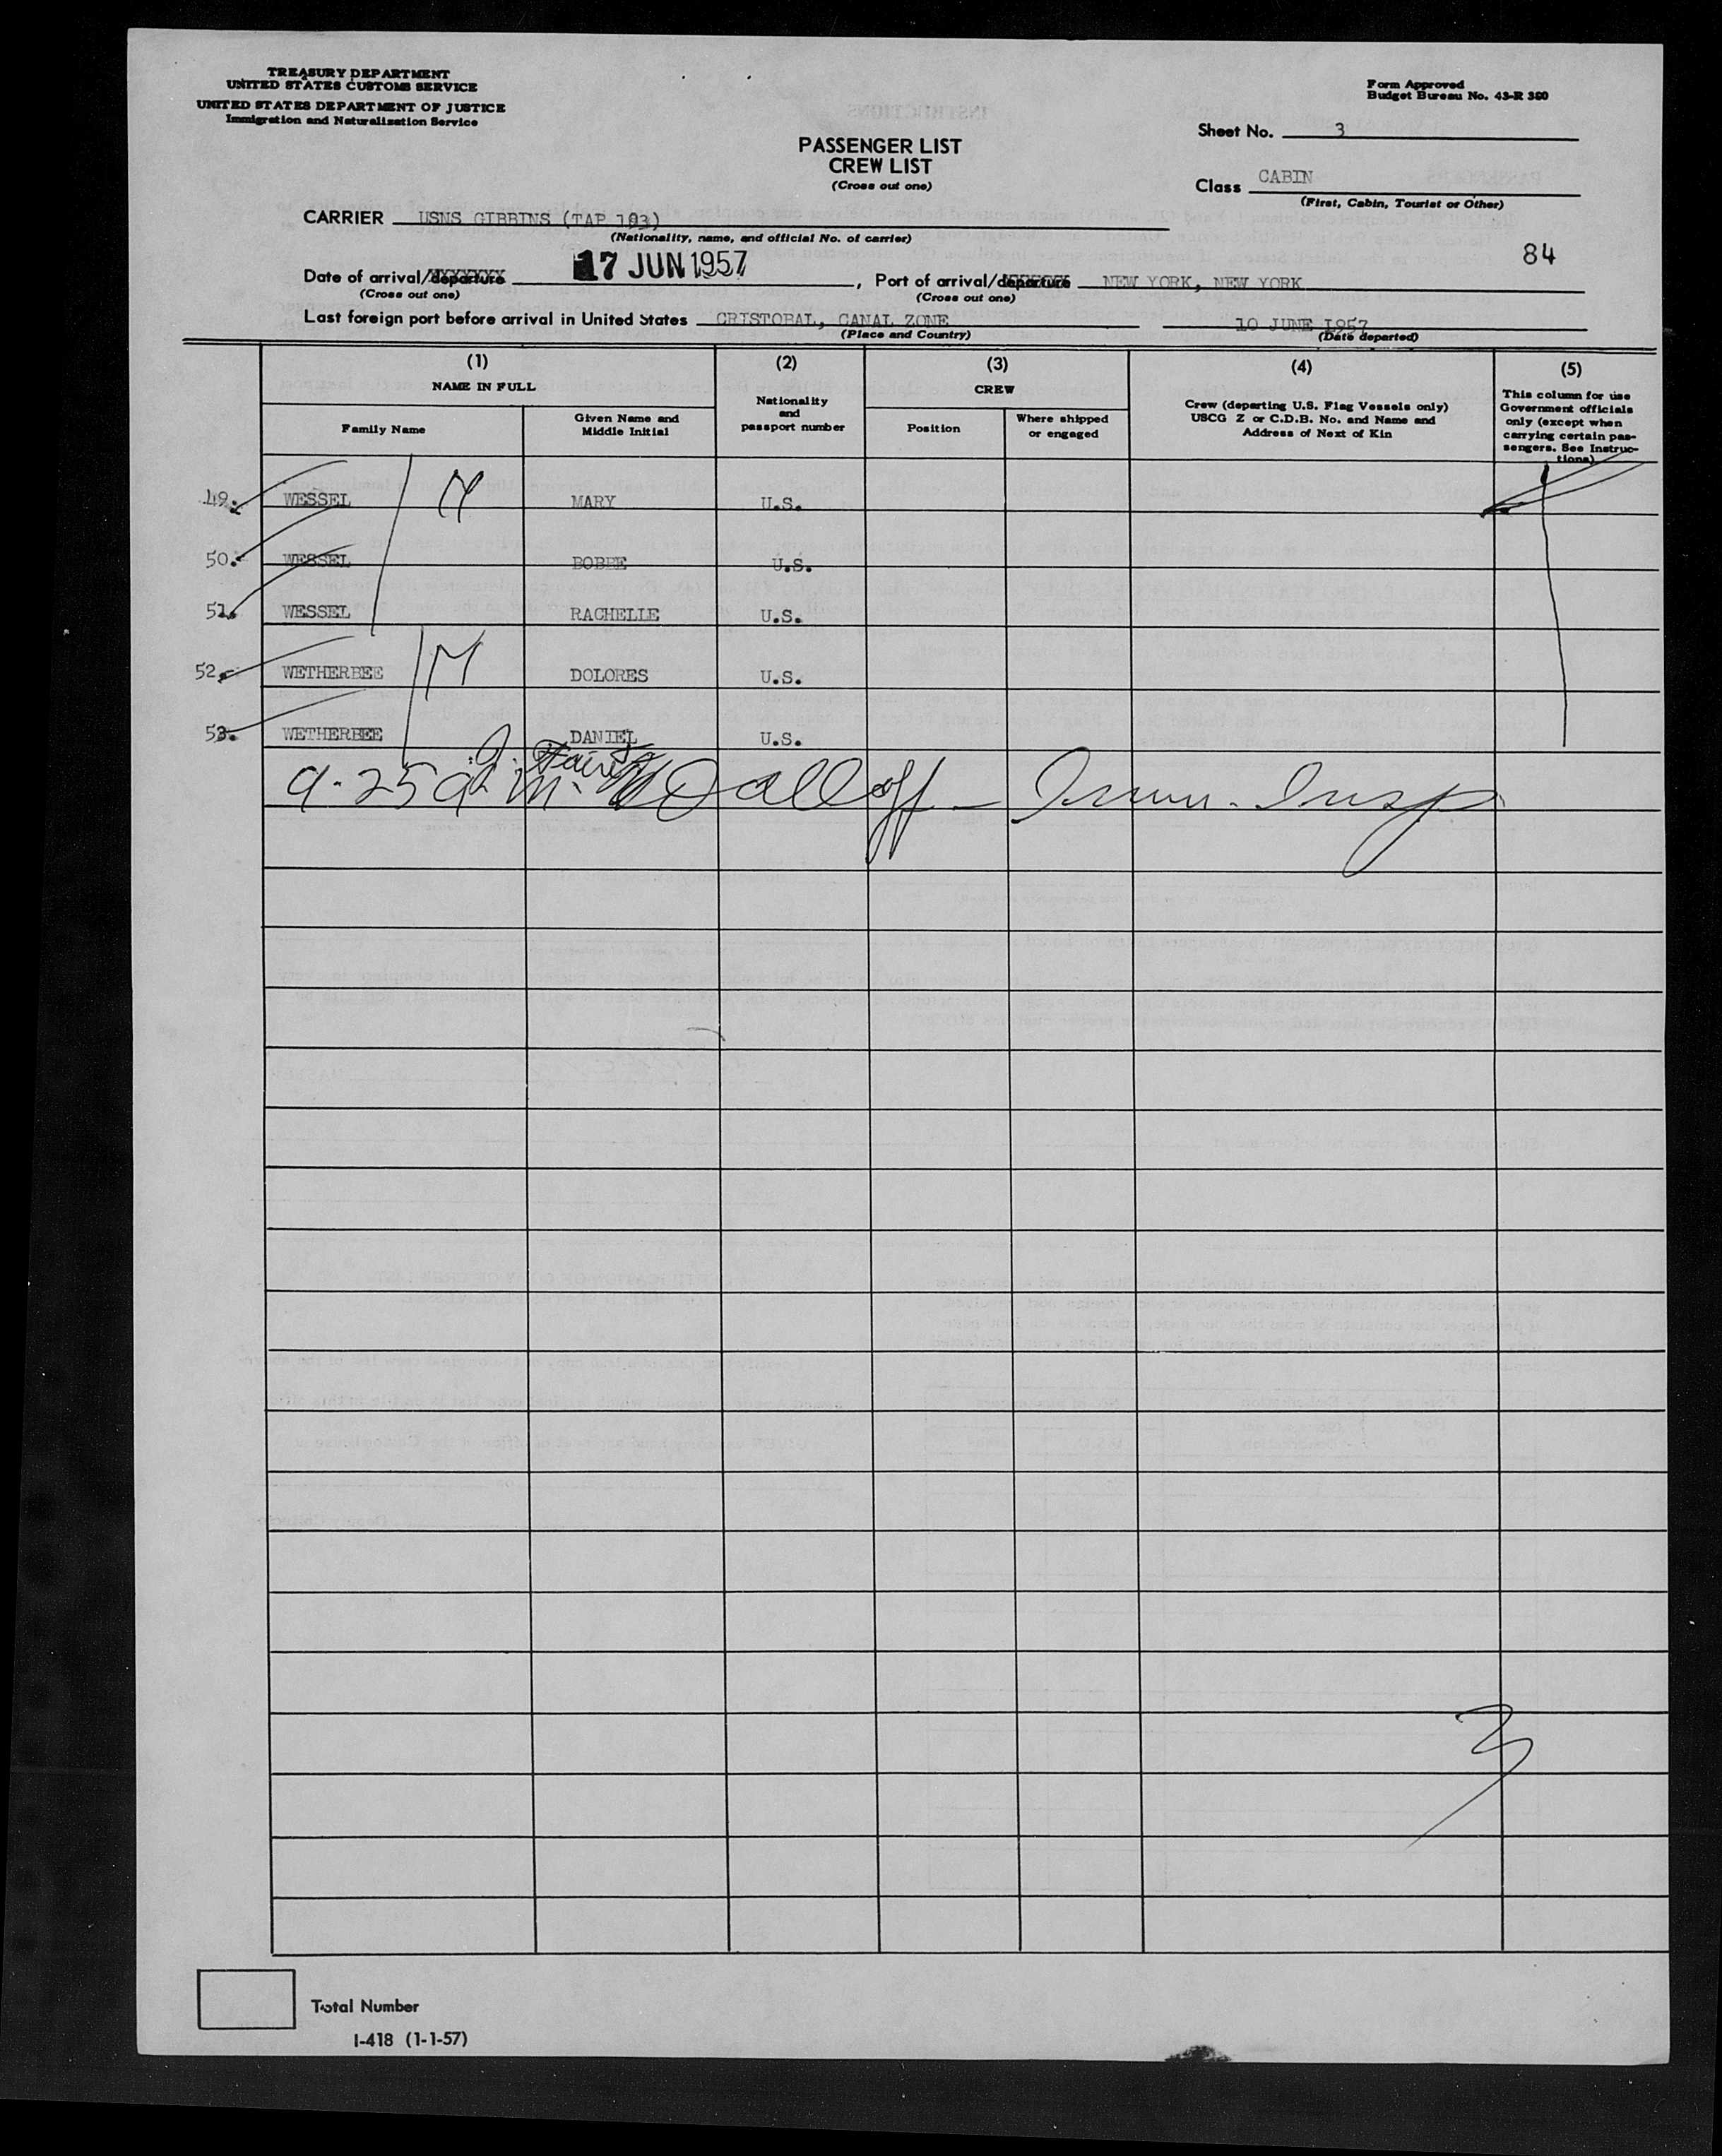 TREASURY DEPARTMENT
UNITED STATES CUSTOMS SERVICE
UNITED STATES DEPARTMENT OF JUSTICE
Immigration and Naturalization Service
Form Approved
Budget Bureau No. 43-R 360
Sheet No. 3
PASSENGER LIST
CREW LIST
(Cross out one)
Class CABIN
(First, Cabin, Tourist or Other)
CARRIER USNS GIBBINS (TAP 193)
(Nationality, name, and official No. of carrier)
84
Date of arrival/departure 17 JUN 1957, Port of arrival/departure NEW YORK, NEW YORK
(Cross out one) (Cross out one)
Last foreign port before arrival in United States CRISTOBAL, CANAL ZONE 10 JUNE 1957
(Place and Country) (Date departed)
(1) (2) (3) (4) (5)
NAME IN FULL
Family Name
Given Name and
Middle Initial
Nationality
and
passport number
CREW
Position
Where shipped
or engaged
Crew (departing U.S. Flag Vessels only)
USCG Z or C.D.B. No. and Name and
Address of Next of Kin
This column for use
Government officials
only (except when
carrying certain pas-
sengers. See Instruc-
tions)
49. WESSEL M MARY U.S.
50. WESSEL BOBBE U.S.
51. WESSEL RACHELLE U.S.
52. WETHERBEE M DOLORES U.S.
53. WETHERBEE DANIEL U.S.
Immn. Insp.
3
Total Number
I-418 (1-1-57)